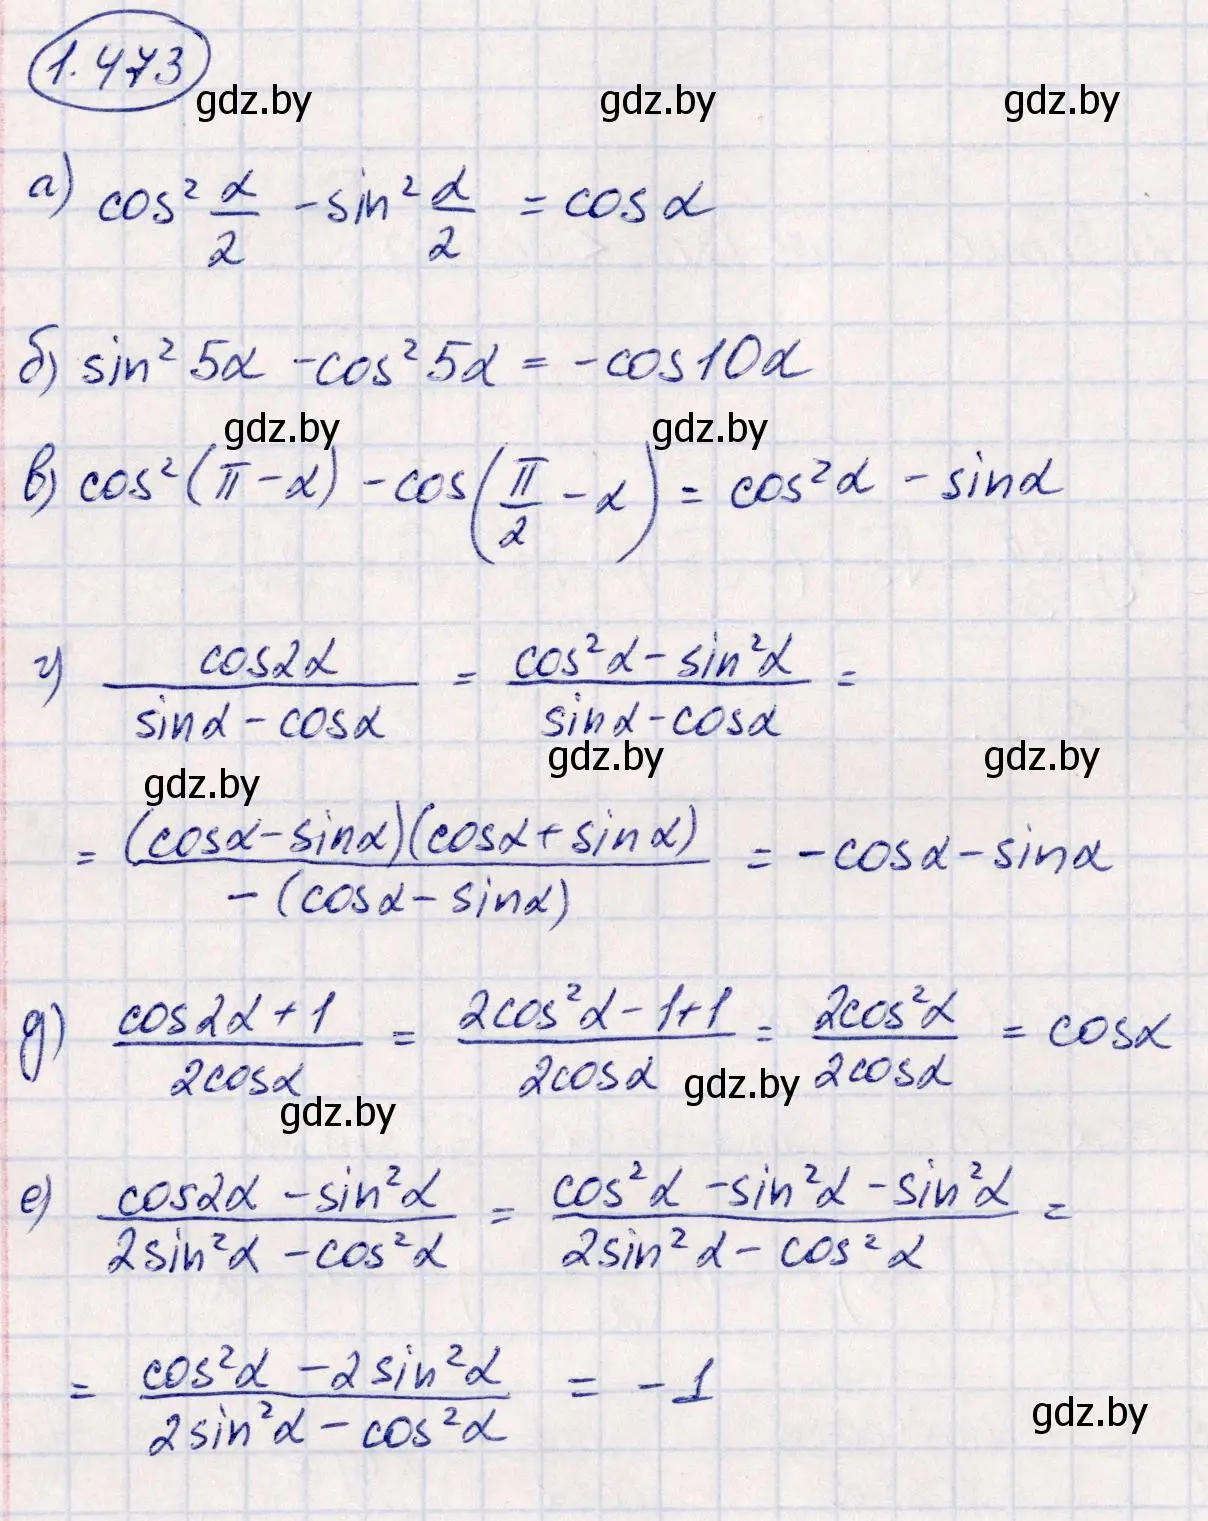 1.473
gdz.by gdz.by gdz.by
а) cos² α/2 - sin² α/2 = cos α
б) sin² 5α - cos² 5α = -cos10α
gdz.by gdz.by
в) cos²(π - α) - cos(π/2 - α) = cos²α - sinα
г) cos2α/(sinα - cosα) = (cos²α - sin²α)/(sinα - cosα) =
gdz.by gdz.by gdz.by
= (cosα - sinα)(cosα + sinα)/-(cosα - sinα) = -cosα - sinα
д) (cos2α + 1)/2cosα = (2cos²α - 1+1)/2cosα = 2cos²α/2cosα = cosα
gdz.by gdz.by
е) (cos2α - sin²α)/(2sin²α - cos²α) = (cos²α - sin²α - sin²α)/(2sin²α - cos²α) =
= (cos²α - 2sin²α)/(2sin²α - cos²α) = -1
gdz.by